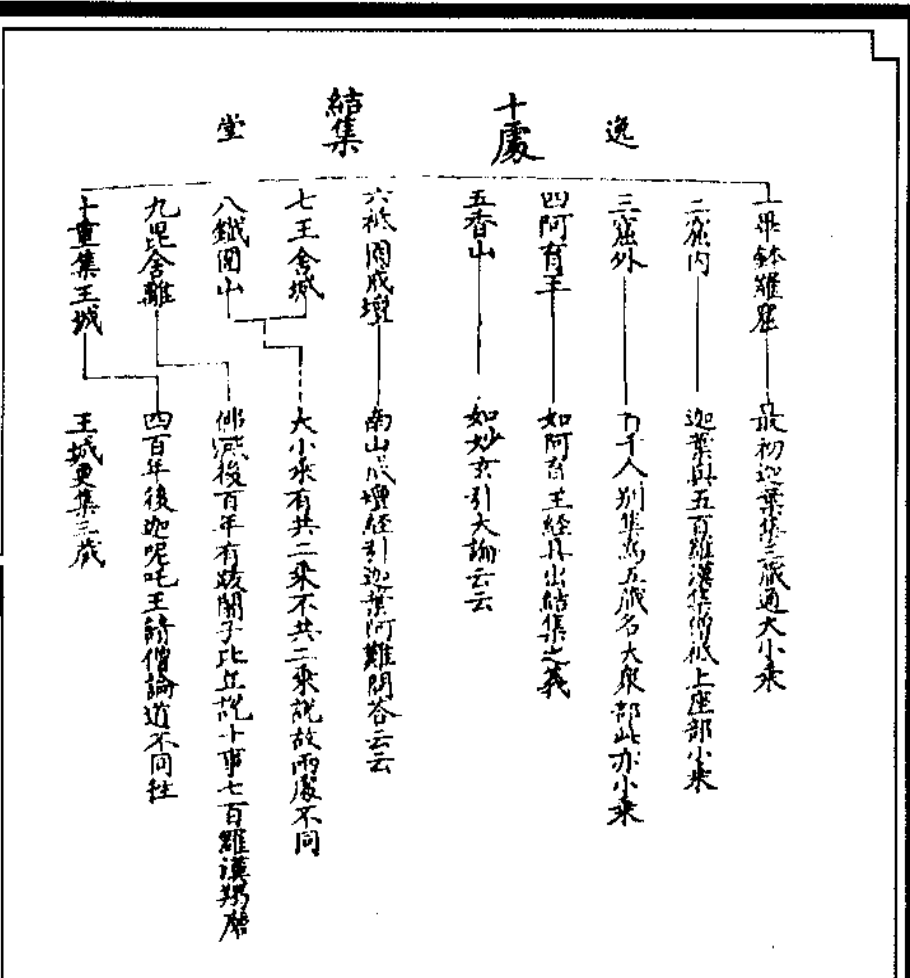 逸
十處
結集
堂
一畢鉢羅窟
最初迦葉集三藏通大小乘
二窟內
迦葉與五百羅漢集僧祇上座部小乘
三窟外
万千人別集為五藏名大衆部此亦小乘
四阿育王
如阿育王經具出結集之義
五香山
如妙玄引大論云云
六祇園戒壇
南山戒壇經引迦葉阿難問答云云
七王舍城
八鐵圍山
大小乘有共二乘不共二乘說故兩處不同
九毘舍離
佛滅後百年有跋闍子比丘說十事七百羅漢羯磨
十重集王城
四百年後迦呢吒王請僧論道不同
王城更集三藏